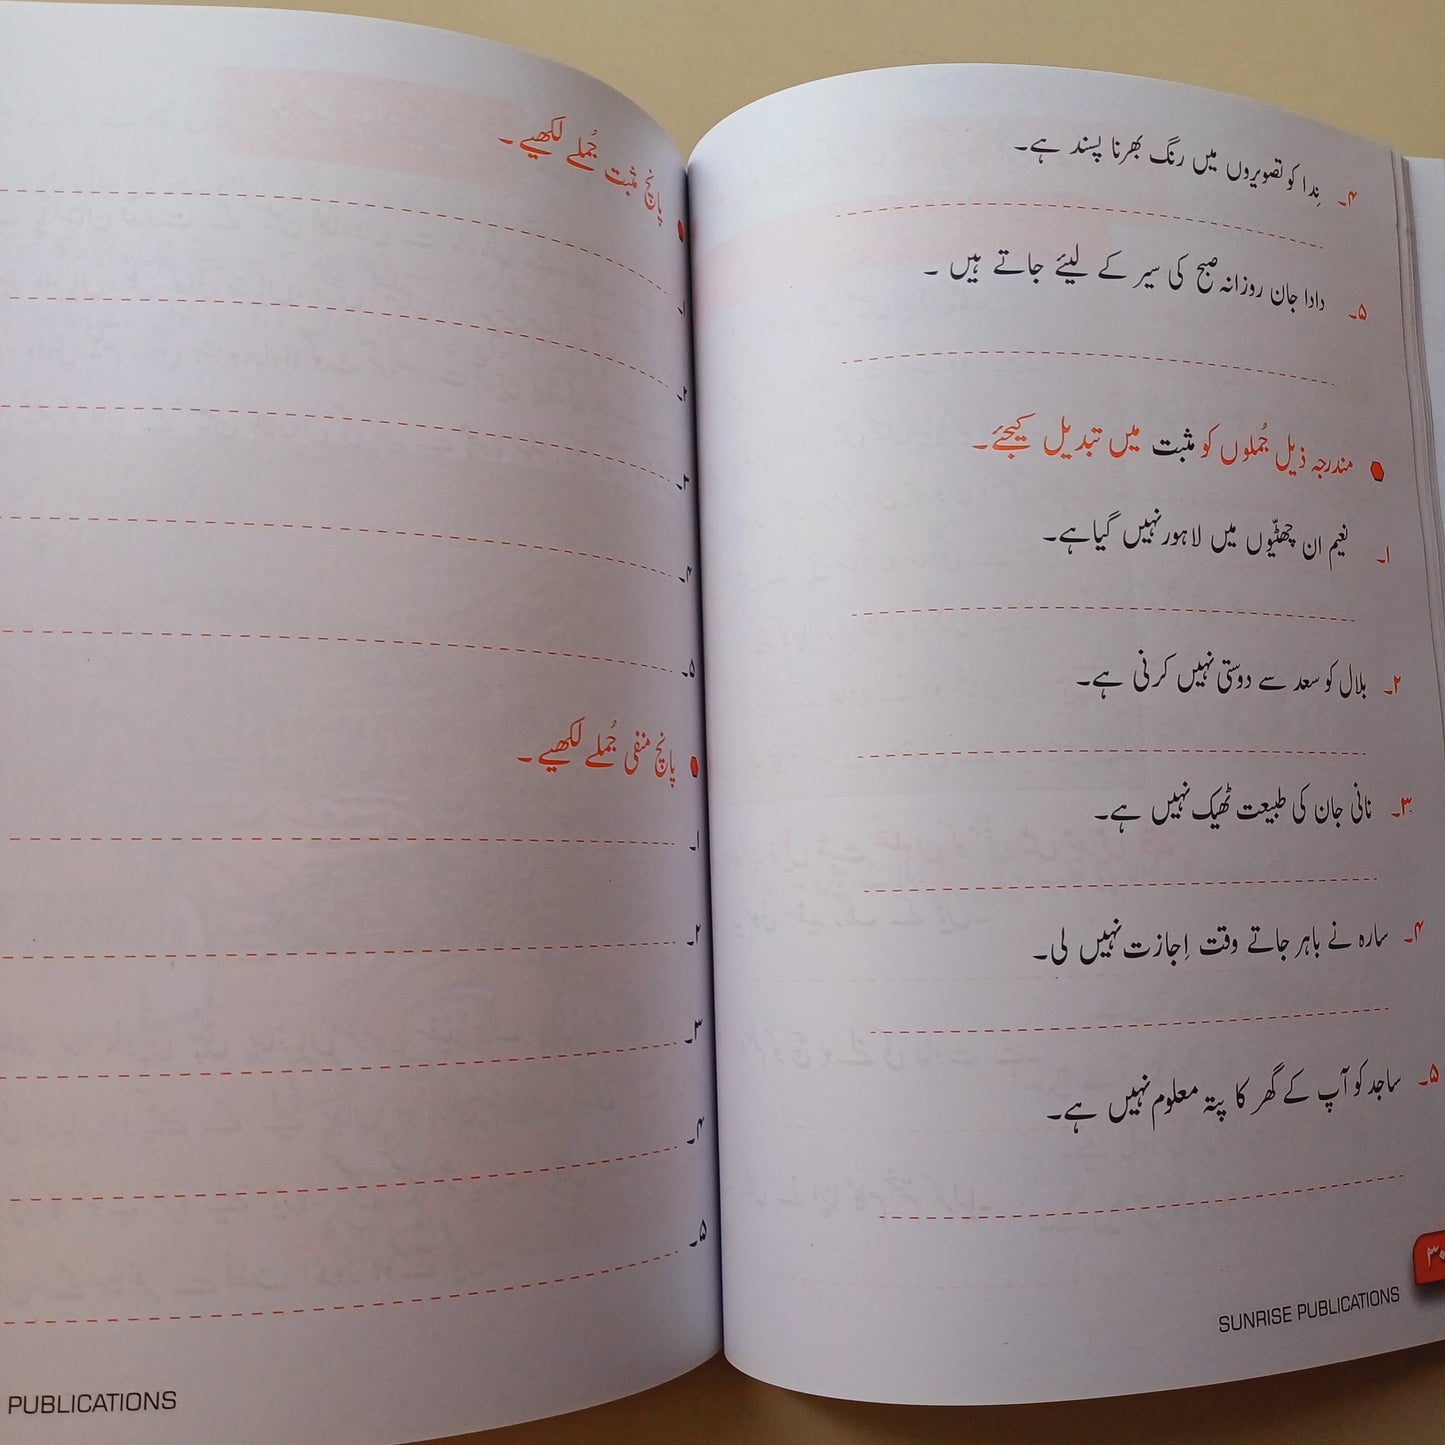 ۴۔ نِدا کو تصویروں میں رنگ بھرنا پسند ہے۔
۵۔ دادا جان روزانہ صبح کی سیر کے لیئے جاتے ہیں ۔
مندرجہ ذیل جُملوں کو مثبت میں تبدیل کیجئے۔
۱۔ نعیم ان چھٹیّوں میں لاہور نہیں گیا ہے۔
۲۔ بلال کو سعد سے دوستی نہیں کرنی ہے۔
۳۔ نانی جان کی طبیعت ٹھیک نہیں ہے۔
۴۔ سارہ نے باہر جاتے وقت اِجازت نہیں لی۔
۵۔ ساجد کو آپ کے گھر کا پتہ معلوم نہیں ہے۔
۳۰
SUNRISE PUBLICATIONS
پانچ مثبت جُملے لکھیے۔
۱۔
۲۔
۳۔
۴۔
۵۔
پانچ منفی جُملے لکھیے۔
۱۔
۲۔
۳۔
۴۔
۵۔
PUBLICATIONS